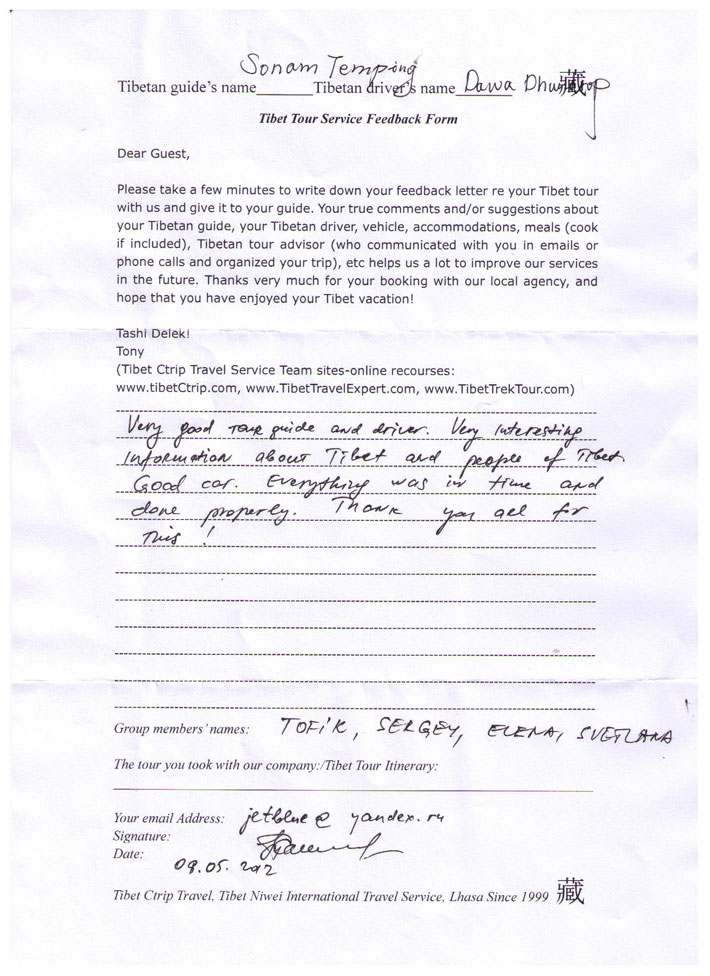 Sonam Temping
Tibetan guide's name_______Tibetan driver's name_______ Dawa 藏
Tibet Tour Service Feedback Form
Dear Guest,
Please take a few minutes to write down your feedback letter re your Tibet tour
with us and give it to your guide. Your true comments and/or suggestions about
your Tibetan guide, your Tibetan driver, vehicle, accommodations, meals (cook
if included), Tibetan tour advisor (who communicated with you in emails or
phone calls and organized your trip), etc helps us a lot to improve our services
in the future. Thanks very much for your booking with our local agency, and
hope that you have enjoyed your Tibet vacation!
Tashi Delek!
Tony
(Tibet Ctrip Travel Service Team sites-online recourses:
www.tibetCtrip.com, www.TibetTravelExpert.com, www.TibetTrekTour.com)
Very good tour guide and driver. Very interesting
information about Tibet and people of Tibet.
Good car. Everything was in time and
done properly. Thank you all for
this!
Group members' names: TOFIK, SERGEY, ELENA, SVETLANA
The tour you took with our company:/Tibet Tour Itinerary:
Your email Address: jetblue@yandex.ru
Signature:
Date: 09.05.2012
Tibet Ctrip Travel, Tibet Niwei International Travel Service, Lhasa Since 1999 藏